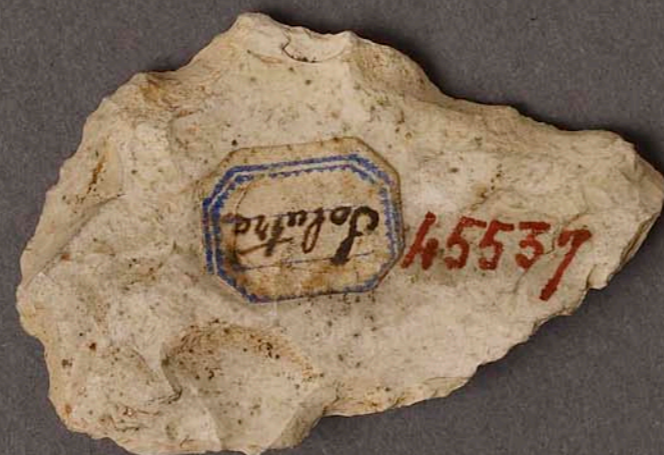 Solutré
45537